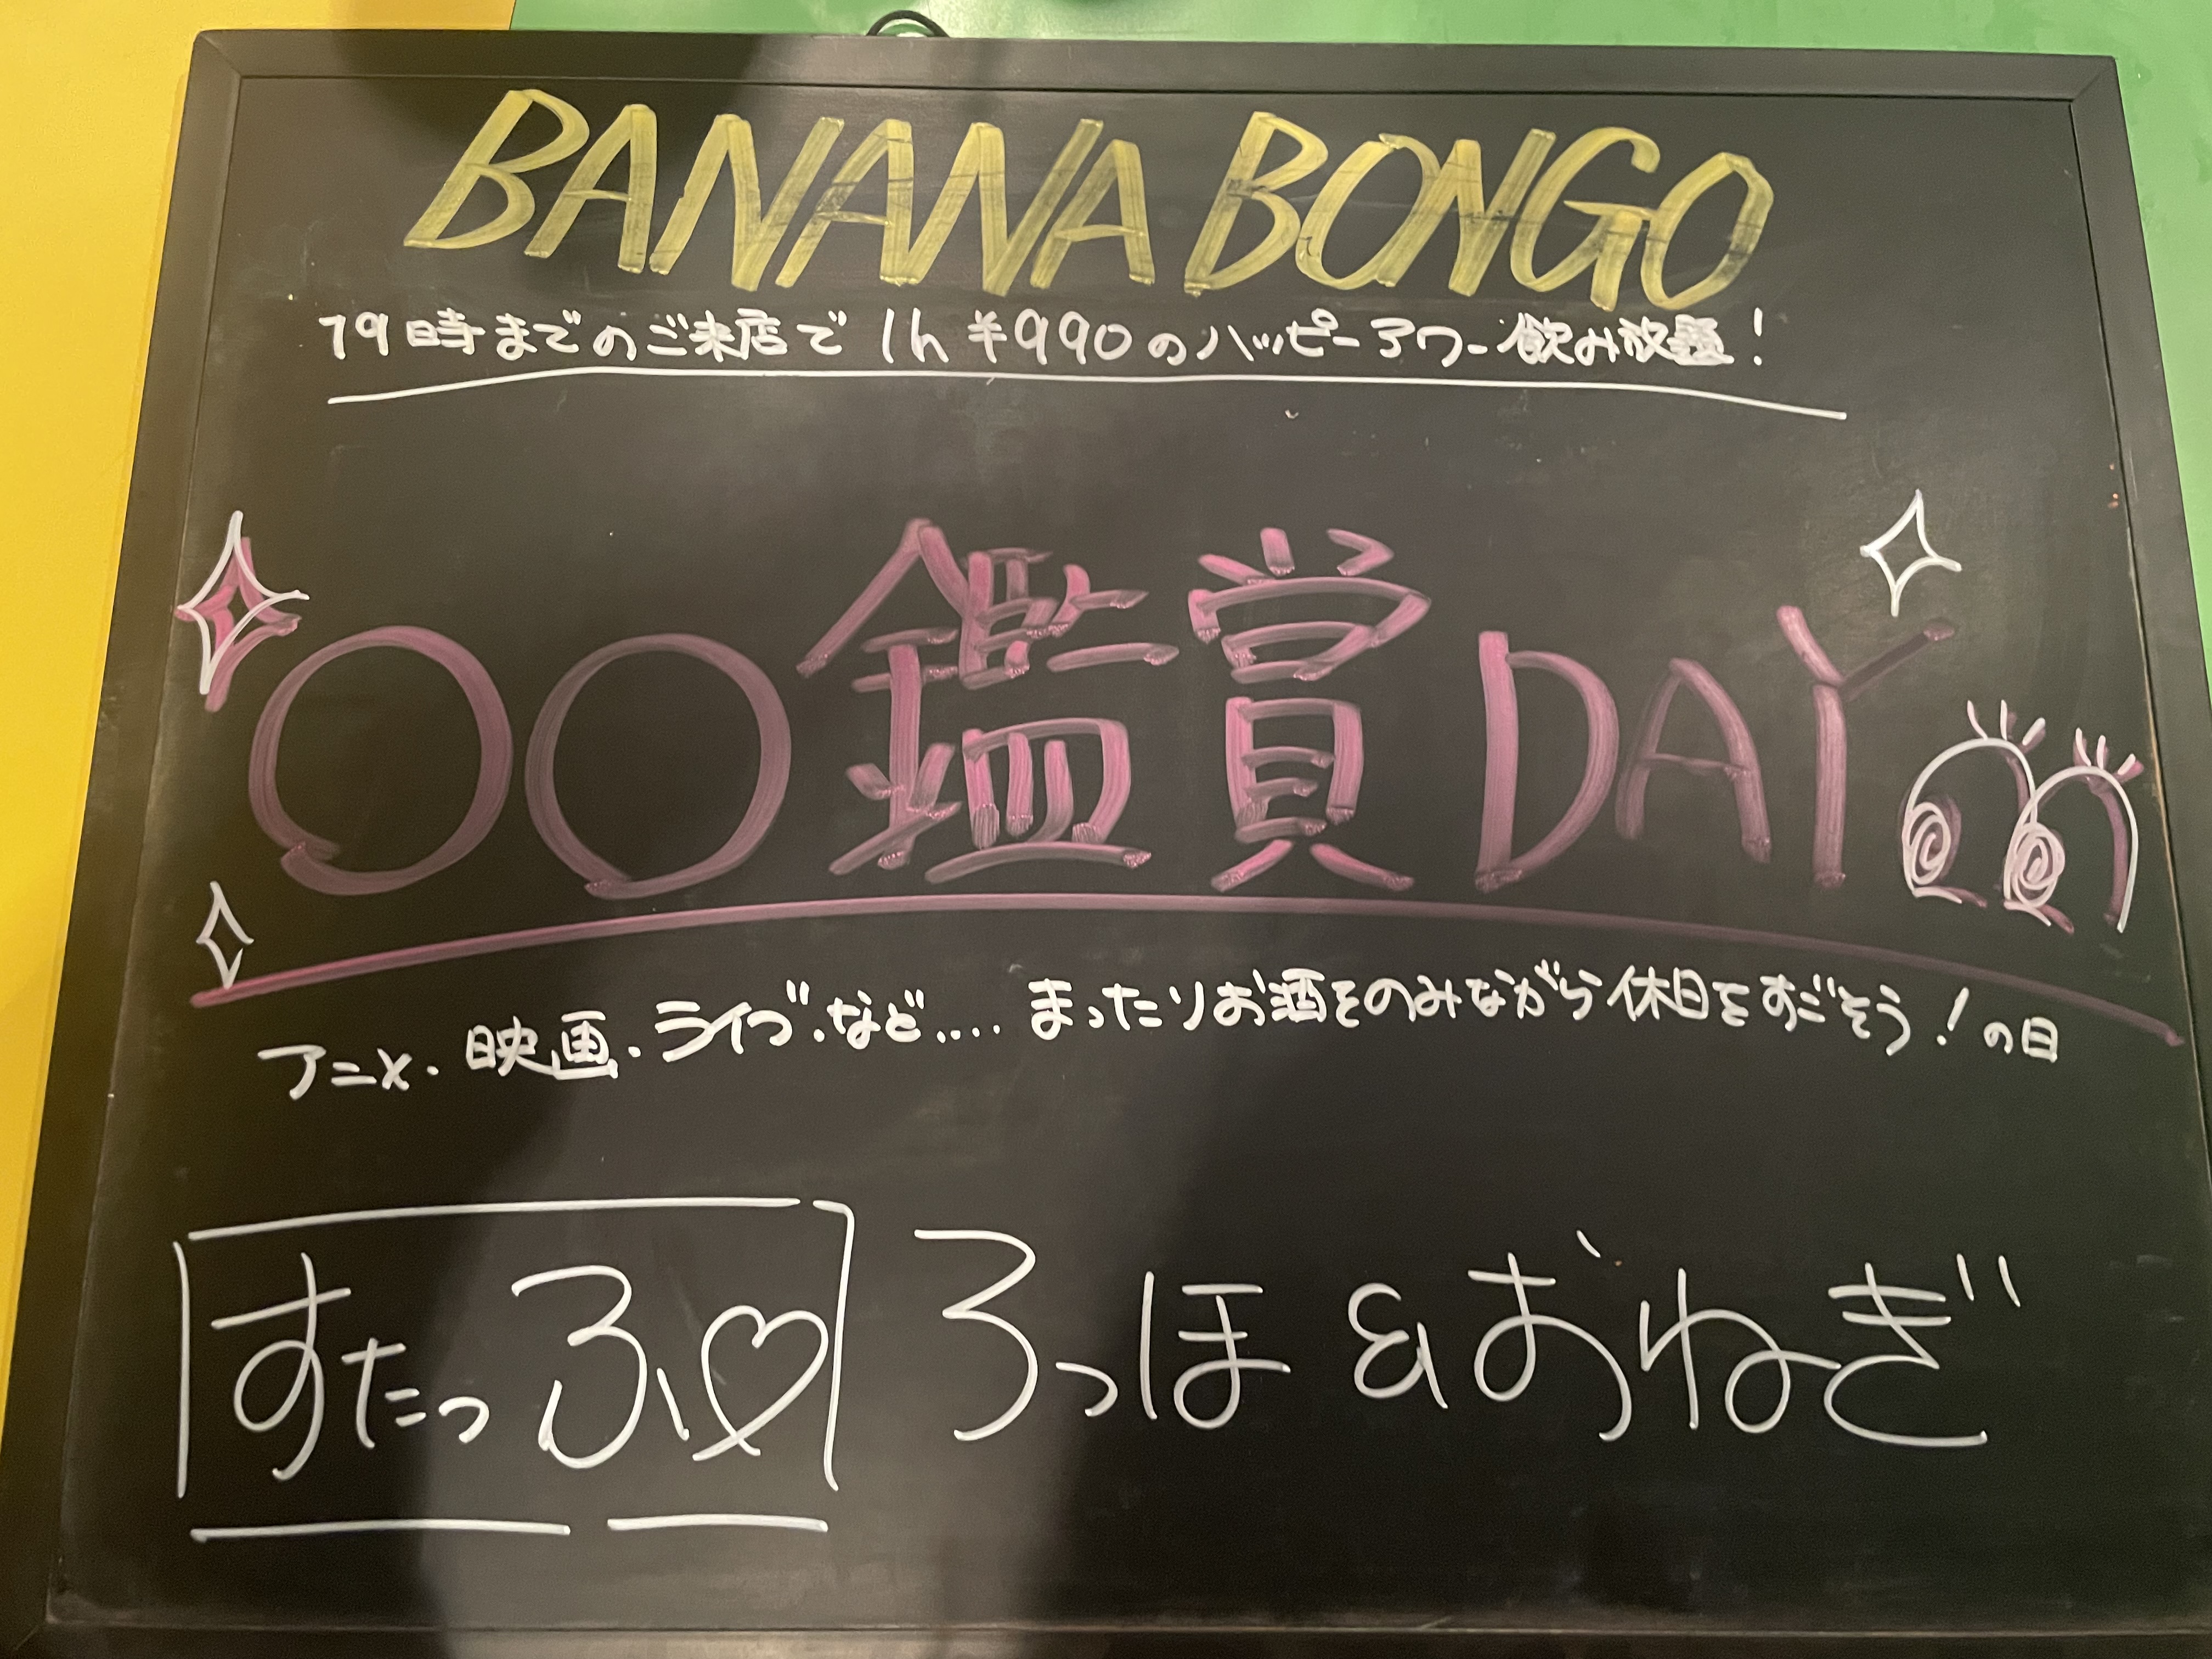 BANANA BONGO
19時までのご来店で 1h ¥990のハッピーアワー飲み放題!
〇〇鑑賞DAY
アニメ・映画・ライブ・など.... まったりお酒をのみながら休日をすごそう!の日
すたっふ♡ ろっほ&おねぎ